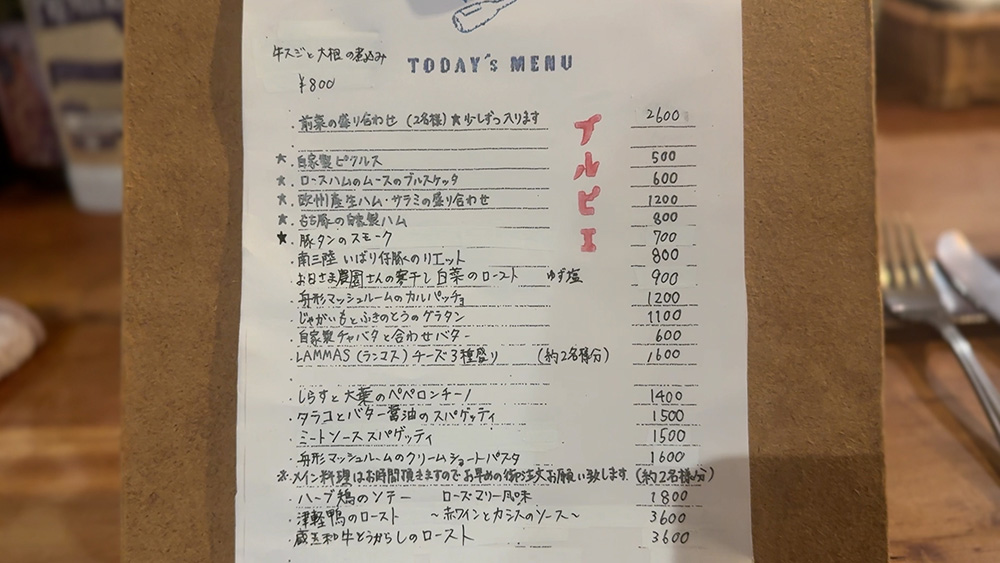 牛スジと大根の煮込み
¥800
TODAY's MENU
・前菜の盛り合わせ (2名様) ★少しずつ入ります 2600
ブルピエ
★・自家製ピクルス 500
★・ロースハムのムースのブルスケッタ 600
★・欧州産生ハム・サラミの盛り合わせ 1200
★・もち豚の自家製ハム 800
★・豚タンのスモーク 700
・南三陸 いばり仔豚のリエット 800
・お日さま農園さんの寒干し白菜のロースト ゆず塩 900
・舟形マッシュルームのカルパッチョ 1200
・じゃがいもとふきのとうのグラタン 1100
・自家製チャバタと合わせバター 600
・LAMMAS (ランマス) チーズ3種盛り (約2名様分) 1600
・しらすと大葉のペペロンチーノ 1400
・タラコとバター醤油のスパゲッティ 1500
・ミートソーススパゲッティ 1500
・舟形マッシュルームのクリームショートパスタ 1600
※メイン料理はお時間頂きますのでお早めの御注文お願い致します。(約2名様分)
・ハーブ鶏のソテー ローズマリー風味 1800
・津軽鴨のロースト 〜赤ワインとカシスのソース〜 3600
・蔵王和牛とうがらしのロースト 3600